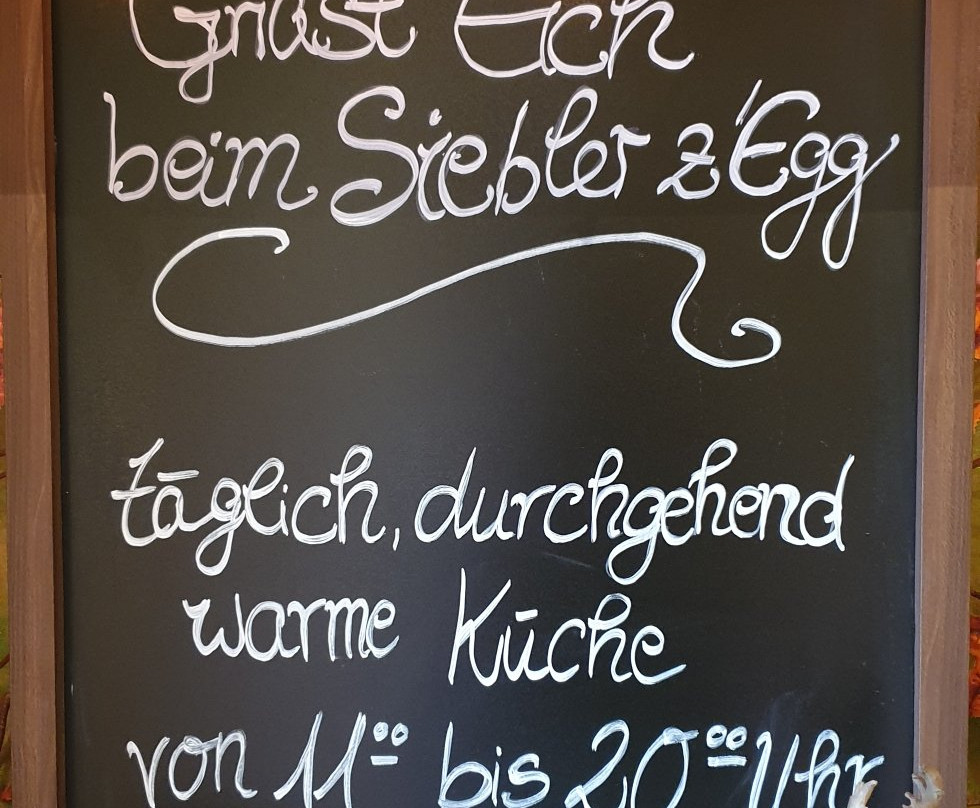 Griast Eich
beim Siebler z'Egg
täglich, durchgehend
warme Küche
von 11⁰⁰ bis 20⁰⁰ Uhr